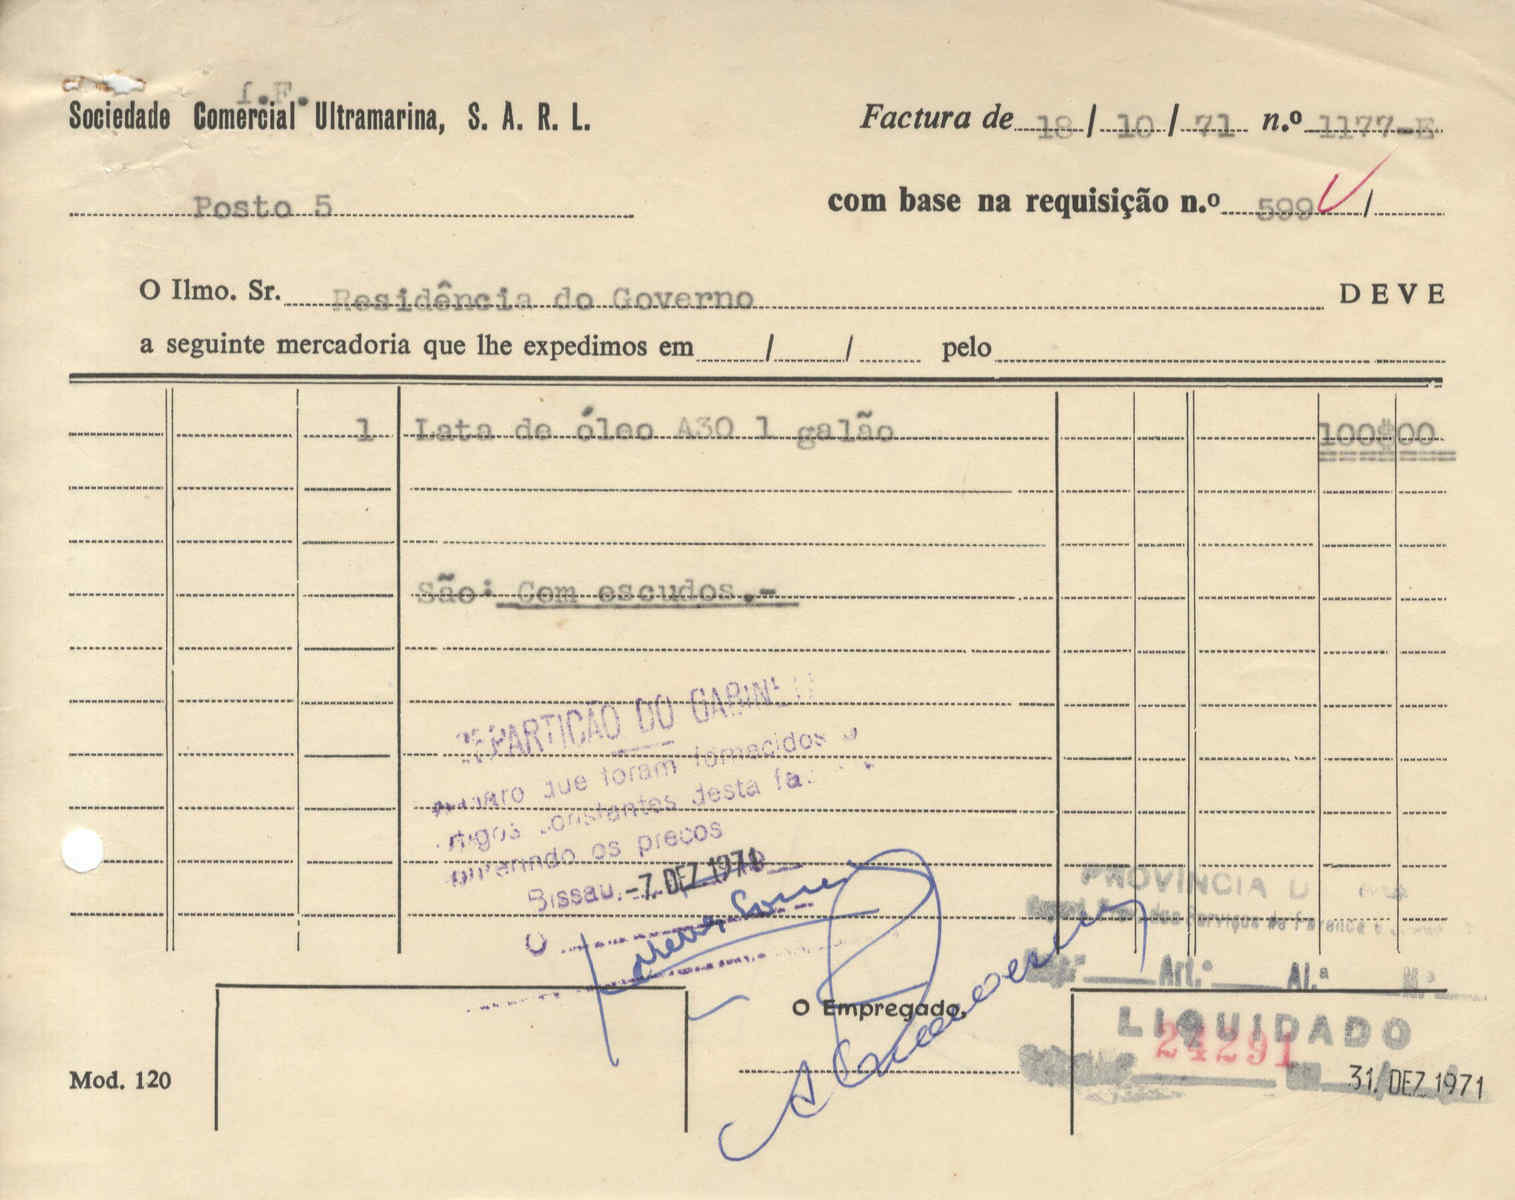 f.F.
Sociedade Comercial Ultramarina, S. A. R. L.
Factura de 18/10/71 n.º 1177-E
Posto 5
com base na requisição n.º 599 /
O Ilmo. Sr. Residência do Governo DEVE
a seguinte mercadoria que lhe expedimos em / / pelo
1 Lata de óleo A30 1 galão 100$00
São: Cem escudos.-
REPARTIÇÃO DO GABINETE
que foram fornecidos
constantes desta
os preços
Bissau, -7. DEZ 1971
O
PROVÍNCIA
Serviços de
Art.º Al.ª N.º
O Empregado,
LIQUIDADO
24291
31. DEZ 1971
Mod. 120